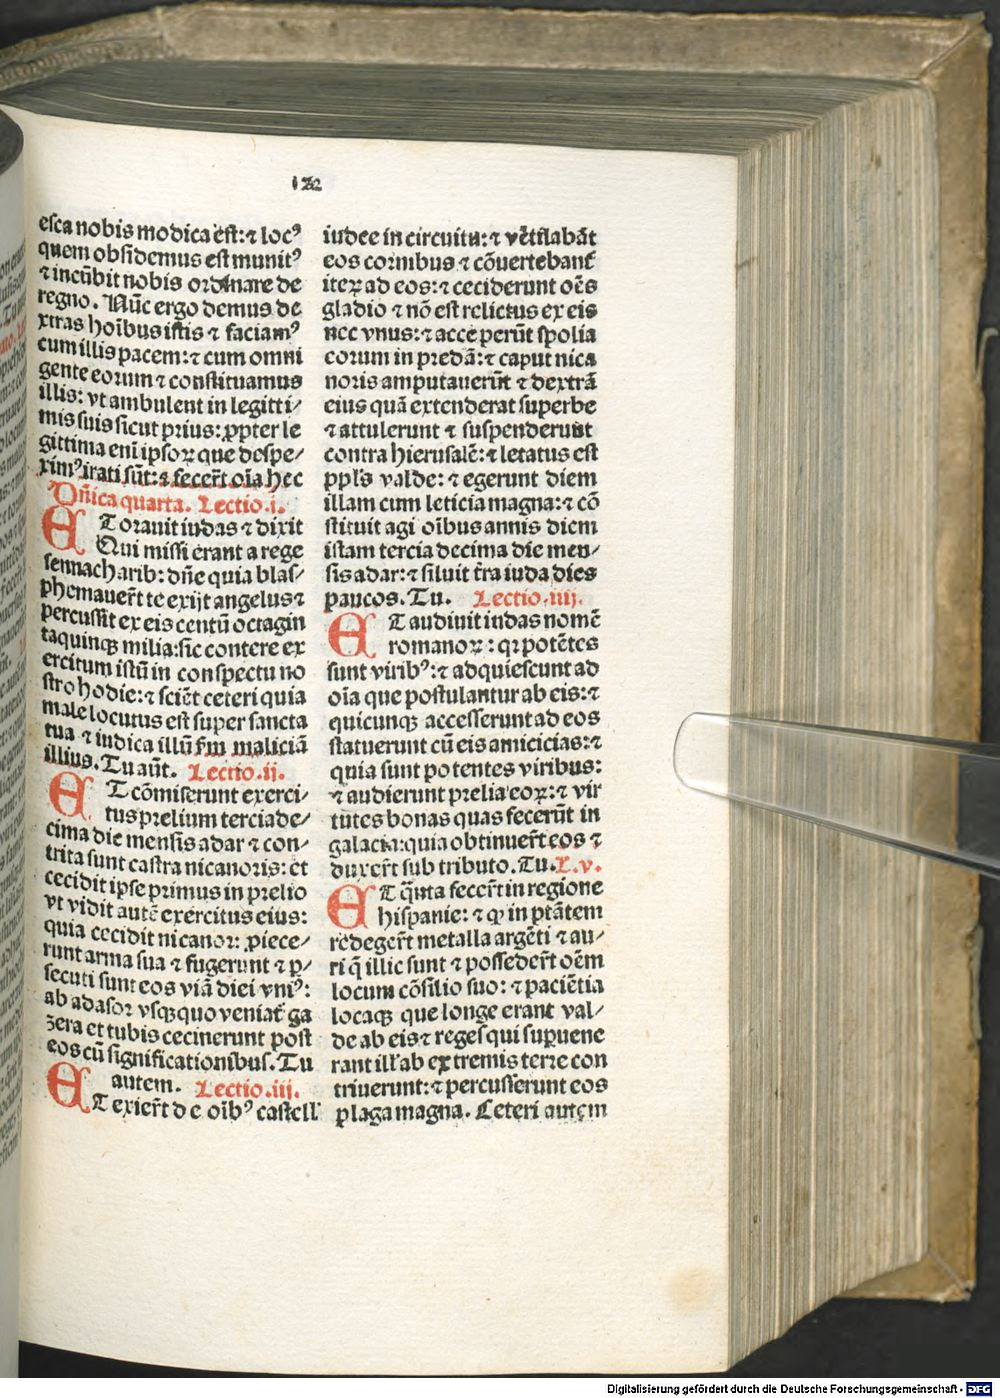 122
esca nobis modica est: ⁊ locꝰ
quem obsidemus est munitꝰ
⁊ incūbit nobis ordinare de
regno. Nūc ergo demus de
xtras hoībus istis ⁊ faciamꝰ
cum illis pacem: ⁊ cum omni
gente eorum ⁊ constituamus
illis: vt ambulent in legitti/
mis suis sicut prius: ꝓpter le
gittima eni ipsoꝝ que despe/
ximꝰ irati sūt: ⁊ fecer̄t oīa hec
Dn̄ica quarta. Lectio .i.
ET orauit iudas ⁊ dixit
Qui missi erant a rege
sennacharib: dn̄e quia blas/
phemauer̄t te exijt angelus ⁊
percussit ex eis centū octagin
taquinqꝫ milia: sic contere ex
ercitum istū in conspectu no
stro hodie: ⁊ sciēt ceteri quia
male locutus est super sancta
tua ⁊ iudica illū ẜm maliciā
illius. Tu aūt. Lectio .ij.
ET cōmiserunt exerci/
tus prelium tercia de/
cima die mensis adar ⁊ con/
trita sunt castra nicanoris: et
cecidit ipse primus in prelio
vt vidit autē exercitus eius:
quia cecidit nicanor: ꝓiece/
runt arma sua ⁊ fugerunt ⁊ ꝑ/
secuti sunt eos viā diei vniꝰ:
ab adasor vsqꝫquo veniat̄ ga
zera et tubis cecinerunt post
eos cū significationibus. Tu
autem. Lectio .iii.
ET exier̄t de oībꝰ castell̄
iudee in circuitu: ⁊ vētilabāt
eos cornibus ⁊ cōuertebant̄
iteꝝ ad eos: ⁊ ceciderunt oēs
gladio ⁊ nō est relictus ex eis
nec vnus: ⁊ acceperūt spolia
eorum in predā: ⁊ caput nica
noris amputauerūt ⁊ dextrā
eius quā extenderat superbe
⁊ attulerunt ⁊ suspenderunt
contra hierusalē: ⁊ letatus est
ppl̄s valde: ⁊ egerunt diem
illam cum leticia magna: ⁊ cō
stituit agi oībus annis diem
istam tercia decima die men/
sis adar: ⁊ siluit t̄ra iuda dies
paucos. Tu. Lectio .iiij.
ET audiuit iudas nomē
romanoꝝ: qꝛ potētes
sunt viribꝰ: ⁊ adquiescunt ad
oīa que postulantur ab eis: ⁊
quicunqꝫ accesserunt ad eos
statuerunt cū eis amicicias: ⁊
quia sunt potentes viribus:
⁊ audierunt prelia eoꝝ: ⁊ vir
tutes bonas quas fecerūt in
galacia: quia obtinuer̄t eos ⁊
duxer̄t sub tributo. Tu. L. v.
ET q̄nta fecer̄t in regione
hispanie: ⁊ ꝙ in ptātem
redeger̄t metalla argēti ⁊ au/
ri q̄ illic sunt ⁊ posseder̄t oēm
locum cōsilio suo: ⁊ paciētia
locaqꝫ que longe erant val/
de ab eis ⁊ reges qui suꝑuene
rant ill̄ ab extremis terre con
triuerunt: ⁊ percusserunt eos
plaga magna. Ceteri autem
Digitalisierung gefördert durch die Deutsche Forschungsgemeinschaft - DFG